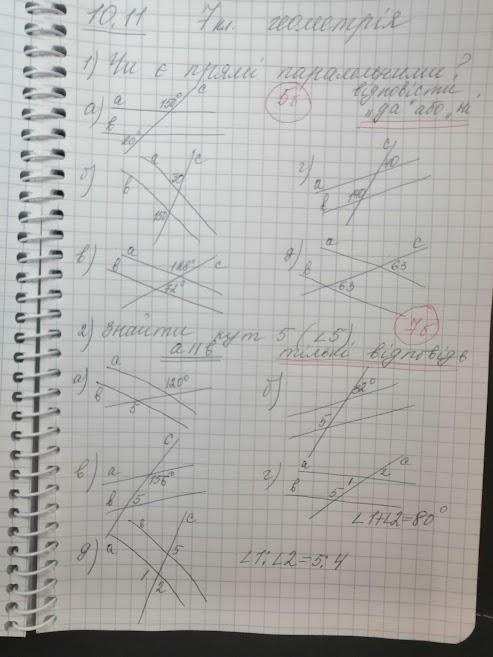 10.11 7 кл. геометрія
1) Чи є прямі паралельними?
5б відповісти
„да" або „ні
а) a 150° c
b
б) a c
b 30
150
г) c
a
b
в) a
b 128° c
52°
д) a c
b 63
63
7б
2) Знайти кут 5 (∠5)
a || b тількі відповідь
а) a
b 120°
5
б) 52°
5
в) c
a 156°
b 5
г) a c
b 1 2
5
∠1+∠2=80°
д) c
a 5
1
2
∠1:∠2=5:4